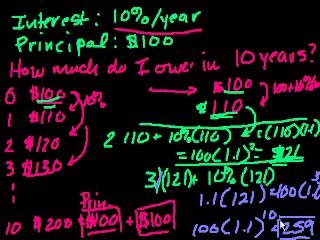 Interest: 10%/year
Principal: $100
How much do I owe in 10 years?
0 $100 10% $100
1 $110 $110 100+10%
2 $120 2 110+10%(110)
=100(1.1)²= $121
3 $130 3 (121)+10%(121)
1.1(121)
Prin
10 $200 $100 + $100 100(1.1)¹⁰ 259